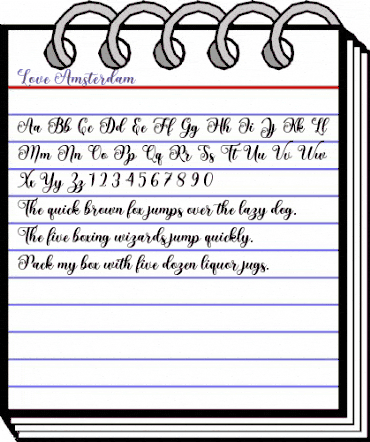 Love Amsterdam
Aa Bb Cc Dd Ee Ff Gg Hh Ii Jj Kk Ll
Mm Nn Oo Pp Qq Rr Ss Tt Uu Vv Ww
Xx Yy Zz 1 2 3 4 5 6 7 8 9 0
The quick brown fox jumps over the lazy dog.
The five boxing wizards jump quickly.
Pack my box with five dozen liquor jugs.